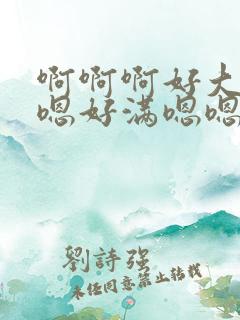 啊啊啊好大
嗯好满嗯嗯
劉詩强
未经同意禁止转载